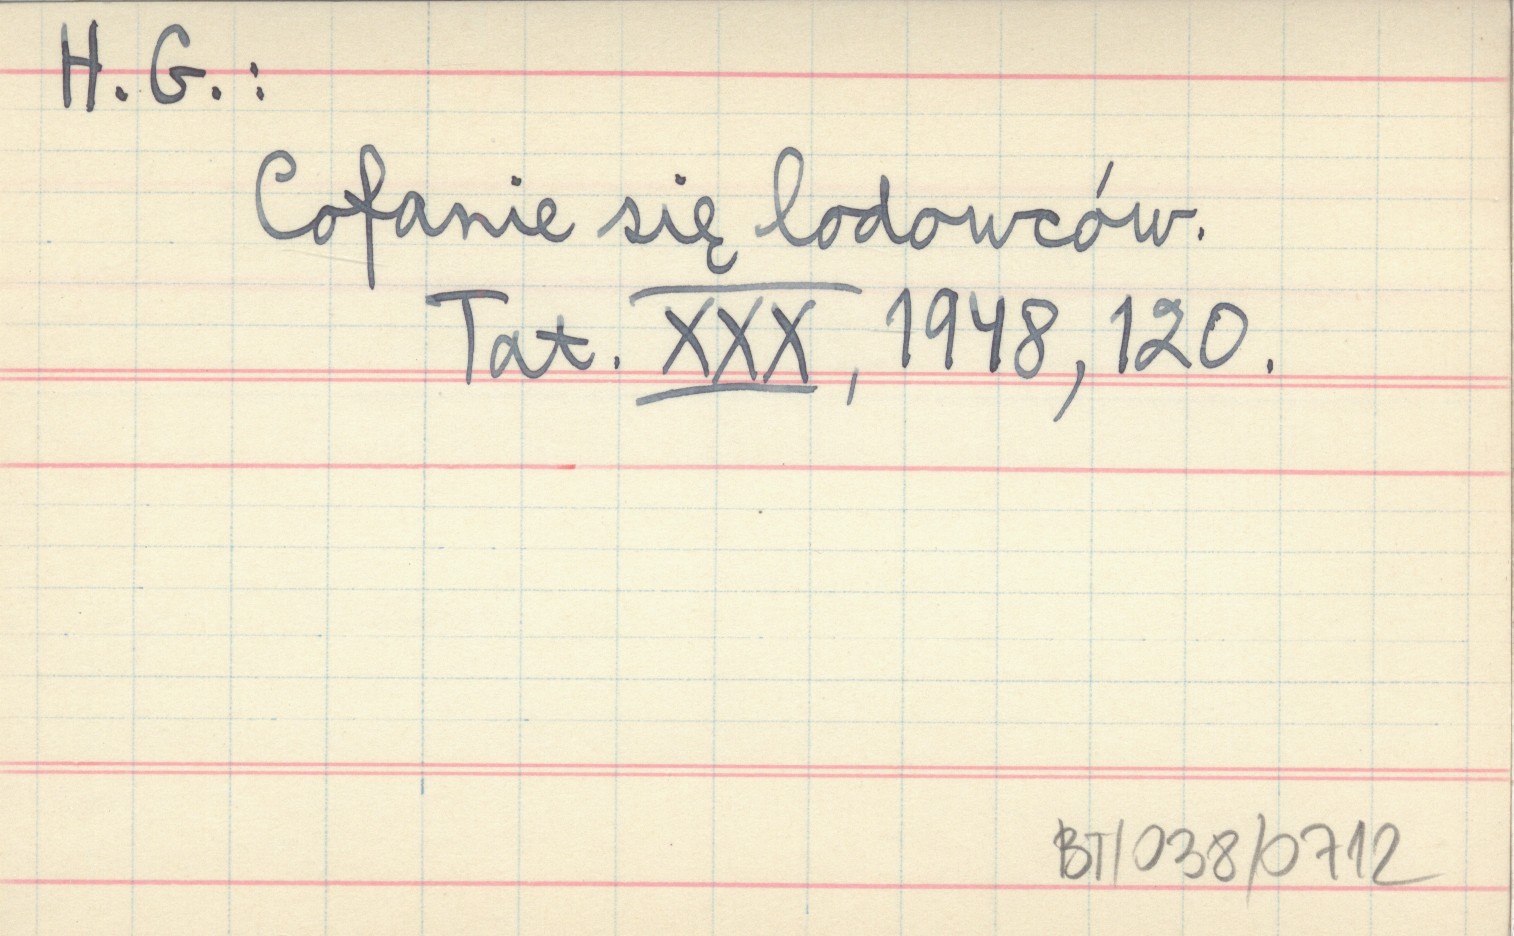 H. G. :
Cofanie się lodowców.
Tat. XXX, 1948, 120.
BT/038/0712